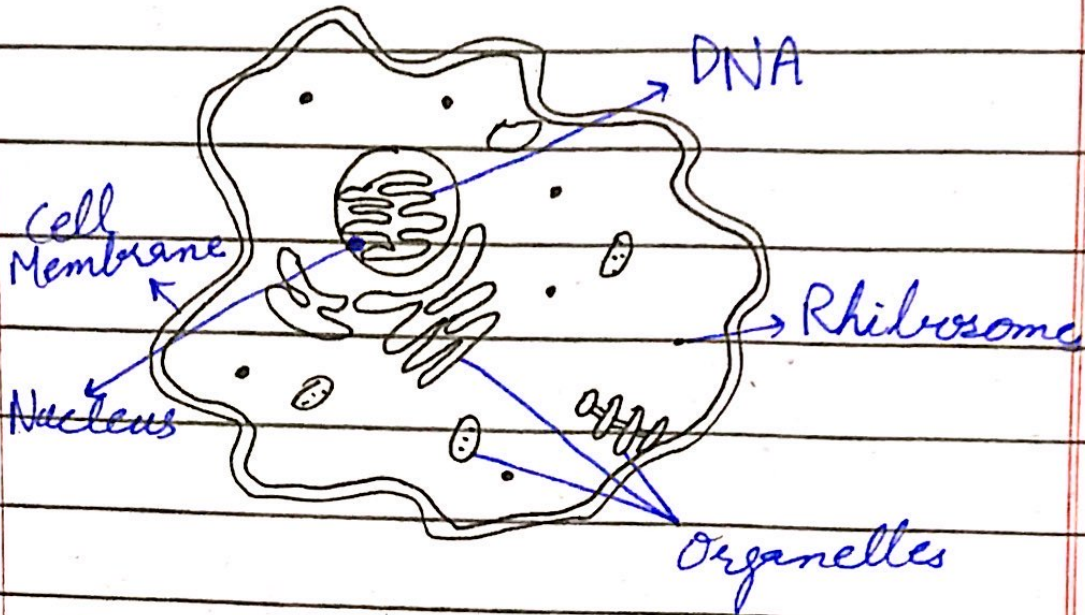 DNA
Cell
Membrane
Rhibosome
Nucleus
Organelles